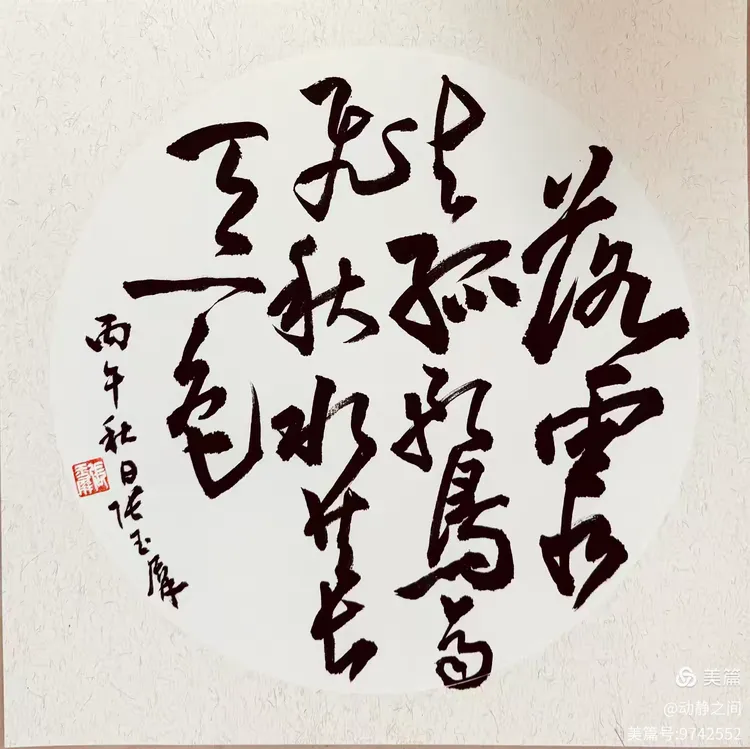 落霞
與孤鶩齊
飛秋水共長
天一色
丙午秋日張玉
美篇
@动静之间
美篇号:9742552